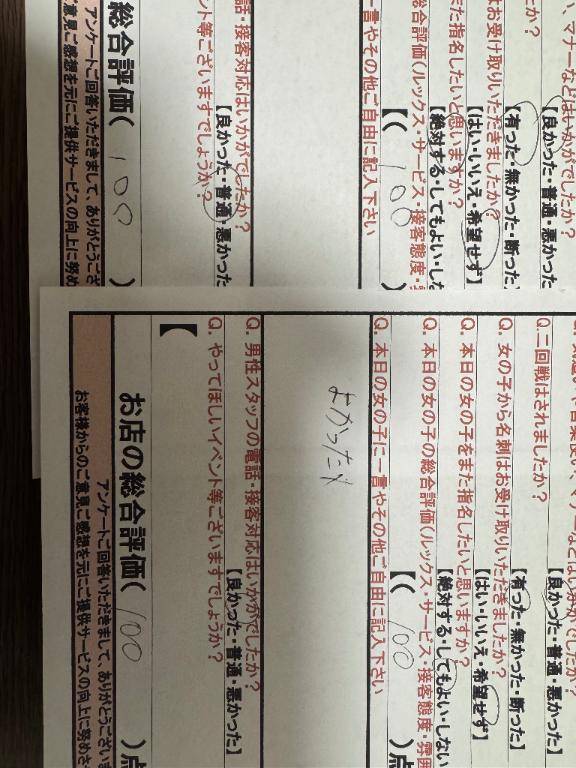 、マナーなどはいかがでしたか？
【良かった・普通・悪かった
たか？
【有った・無かった・断った】
はお受け取りいただきましたか？
【はい・いいえ・希望せず】
また指名したいと思いますか？
【絶対する・してもよい・しな
総合評価(ルックス・サービス・接客態度・雰
【( 100 )
一言やその他ご自由に記入下さい
話・接客対応はいかがでしたか？
【良かった・普通・悪かった
ント等ございますでしょうか？
総合評価( 100 )
アンケートご回答いただきまして、ありがとうござ
ご意見ご感想を元にご提供サービスの向上に努め
、マナーなどはいかがでしたか？
【良かった・普通・悪かった】
Q. 二回戦はされましたか？
【有った・無かった・断った】
Q. 女の子から名刺はお受け取りいただきましたか？
【はい・いいえ・希望せず】
Q. 本日の女の子をまた指名したいと思いますか？
【絶対する・してもよい・しない
Q. 本日の女の子の総合評価(ルックス・サービス・接客態度・雰囲
【( 100 )点
Q. 本日の女の子に一言やその他ご自由に記入下さい
よかったよ
Q. 男性スタッフの電話・接客対応はいかがでしたか？
【良かった・普通・悪かった】
Q. やってほしいイベント等ございますでしょうか？
【
お店の総合評価( 100 )点
アンケートにご回答いただきまして、ありがとうございま
お客様からのご意見ご感想を元にご提供サービスの向上に努めさ